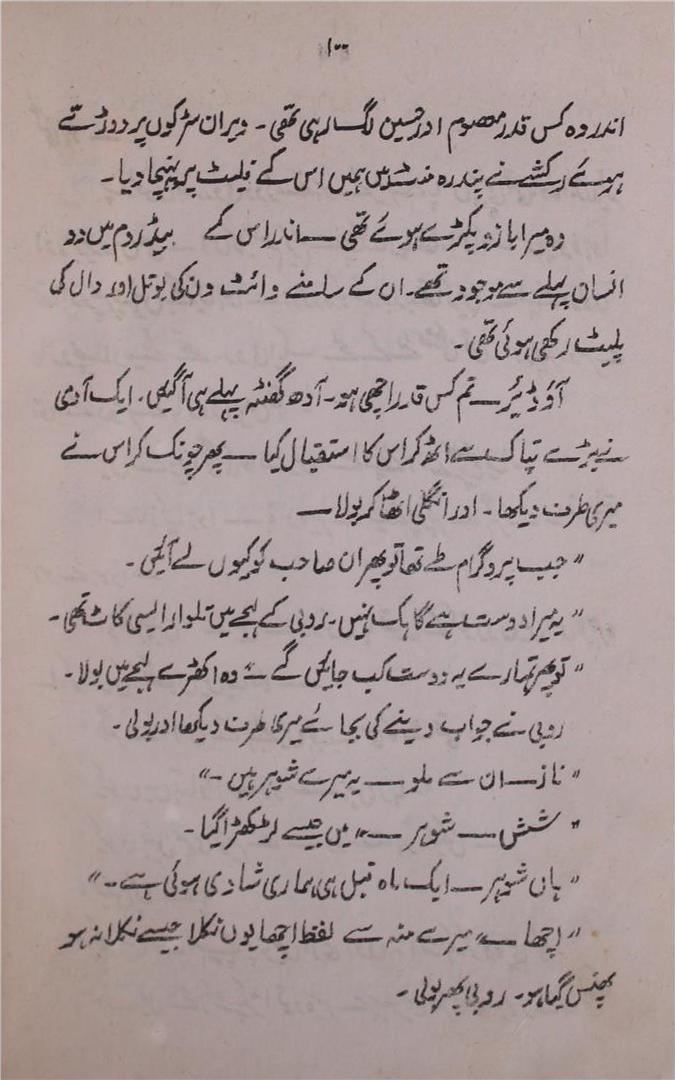 ۱۰۰
اندر وہ کس قدر معصوم اور حسین لگ رہی تھی۔ ویران سڑکوں پر دوڑتے
ہوئے رکشے نے پندرہ منٹ میں ہمیں اس کے فلیٹ پر پہنچا دیا۔
وہ میرا بازو پکڑے ہوئے تھی ــ اندر اس کے بیڈ روم میں دو
انسان پہلے سے موجود تھے۔ ان کے سامنے وائٹ ون کی بوتل اور دال کی
پلیٹ رکھی ہوئی تھی۔
آؤ ڈئیر ــ تم کس قدر اچھی ہو۔ آدھ گھنٹہ پہلے ہی آگیئں۔ ایک آدمی
نے بڑے تپاک سے اٹھ کر اس کا استقبال کیا ــ پھر چونک کر اس نے
میری طرف دیکھا۔ اور انگلی اٹھا کر بولا ــ
"جب پروگرام طے تھا تو پھر ان صاحب کو کیوں لے آئیں۔
"یہ میرا دوست ہے گاہک نہیں۔ روبی کے لہجے میں تلوار ایسی کاٹ تھی۔
"تو پھر تمہارے یہ دوست کب جائیں گے" وہ اکھڑے لہجے میں بولا۔
روبی نے جواب دینے کی بجائے میری طرف دیکھا اور بولی۔
"ناز ــ ان سے ملو ــ یہ میرے شوہر ہیں۔"
"شش ــ شوہر ــ" میں جیسے لڑکھڑا گیا۔
"ہاں شوہر ــ ایک ماہ قبل ہی ہماری شادی ہوئی ہے۔"
"اچھا ــ" میرے منہ سے لفظ اچھا یوں نکلا جیسے نکلا نہ ہو
پھنس گیا ہو۔ روبی پھر بولی۔